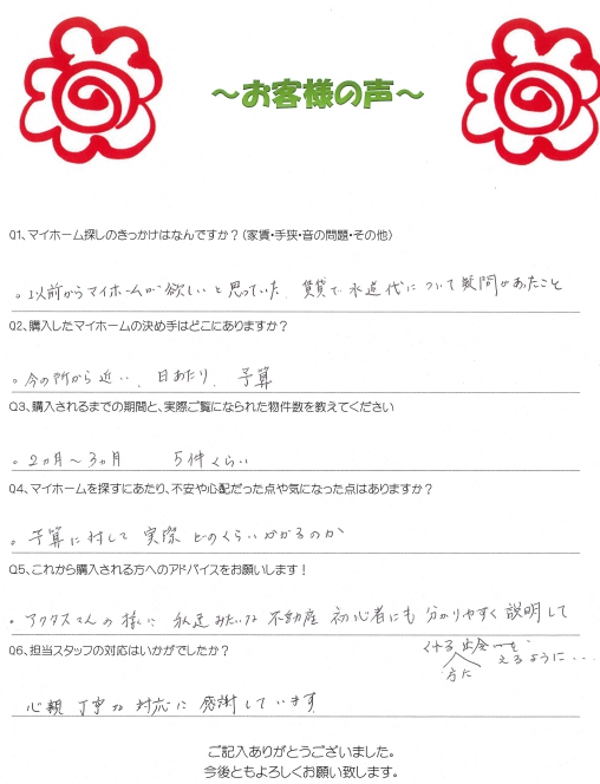 ～お客様の声～
Q1、マイホーム探しのきっかけはなんですか？（家賃・手狭・音の問題・その他）
。以前からマイホームが欲しいと思っていた、賃貸で水道代について疑問があったこと
Q2、購入したマイホームの決め手はどこにありますか？
。今の所から近い、日あたり、予算
Q3、購入されるまでの期間と、実際ご覧になられた物件数を教えてください
。2ヵ月～3ヵ月 5件くらい
Q4、マイホームを探すにあたり、不安や心配だった点や気になった点はありますか？
。予算に対して実際どのくらいかかるのか
Q5、これから購入される方へのアドバイスをお願いします！
・アクタスさんの様に私達みたいな不動産初心者にも分かりやすく説明して
くれる方に出会えるように...
Q6、担当スタッフの対応はいかがでしたか？
心親丁寧な対応に感謝しています
ご記入ありがとうございました。
今後ともよろしくお願い致します。